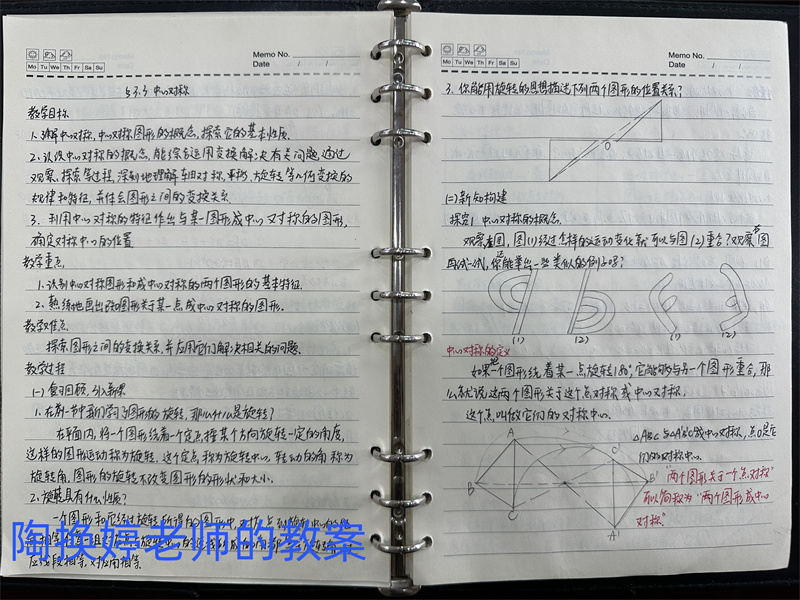 Mo Tu We Th Fr Sa Su
Memo No.
Date / /
§3.3 中心对称
教学目标
1. 理解中心对称,中心对称图形的概念,探索它的基本性质.
2. 认识中心对称的概念,能综合运用变换解决有关问题,通过
观察、探索等过程,深刻地理解轴对称、平移、旋转等几何变换的
规律和特征,并体会图形之间的变换关系.
3. 利用中心对称的特征作出与某一图形成中心对称的图形,
确定对称中心的位置
教学重点
1. 识别中心对称图形和成中心对称的两个图形的基本特征.
2. 熟练地画出已知图形关于某一点成中心对称的图形.
教学难点
探索图形之间的变换关系,并应用它们解决相关的问题.
教学过程
(一) 复习回顾,引入新课
1. 在前一节中我们学习了图形的旋转,那么什么是旋转?
在平面内,将一个图形绕着一个定点,按某个方向旋转一定的角度,
这样的图形运动称为旋转,这个定点称为旋转中心,转动的角称为
旋转角,图形的旋转不改变图形的形状和大小.
2. 旋转具有什么性质?
一个图形和它经过旋转所得的图形中,对应点到旋转中心的距
应线段相等,对应角相等.
陶换婷老师的教案
Mo Tu We Th Fr Sa Su
Memo No.
Date / /
3. 你能用旋转的思想描述下列两个图形的位置关系?
O
(二) 新知构建
探究1 中心对称的概念.
观察左图,图(1)经过怎样的运动变化就可以与图(2)重合?观察图
再试一试,你还能举出一些类似的例子吗?
(1) (2) (1) (2)
中心对称的定义
如果把一个图形绕着某一点旋转180°,它能够与另一个图形重合,那
么就说这两个图形关于这个点对称或中心对称,
这个点叫做它们的对称中心.
△ABC与△A'B'C'成中心对称,点O是它
们的对称中心.
A
B
C
C'
B'
A'
"两个图形关于一个点对称"
可以简称为"两个图形成中心
对称."